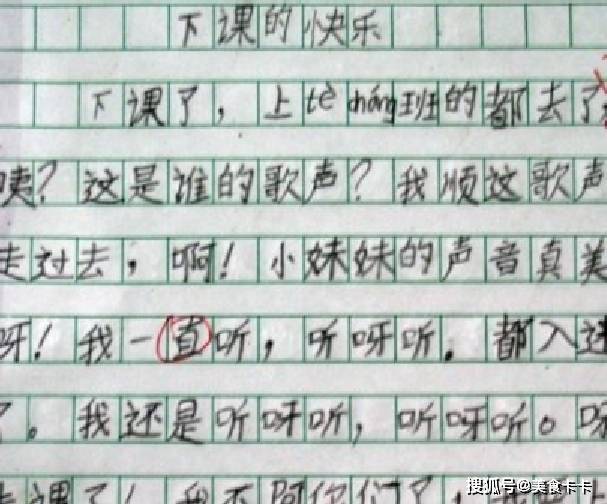 下课的快乐
下课了，上tè cháng班的都去了
咦？这是谁的歌声？我顺这歌声
走过去，啊！小妹妹的声音真美
呀！我一直听，听呀听。都入迷
了。我还是听呀听，听呀听。呀
上课了！我不陪你们了，我
搜狐号@美食卡卡